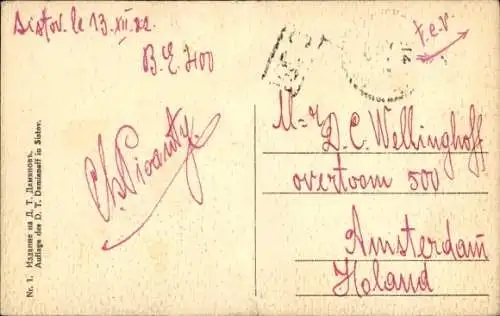 Sistov. le 13. XII. 22
B. E. 7100
t.c.v.
M-r D. C. Wellinghoff
overtoom 500
Amsterdam
Holand
Nr. 1. Издание на Д. Т. Дамяновъ.
Auflage des D. T. Damianoff in Sistov.